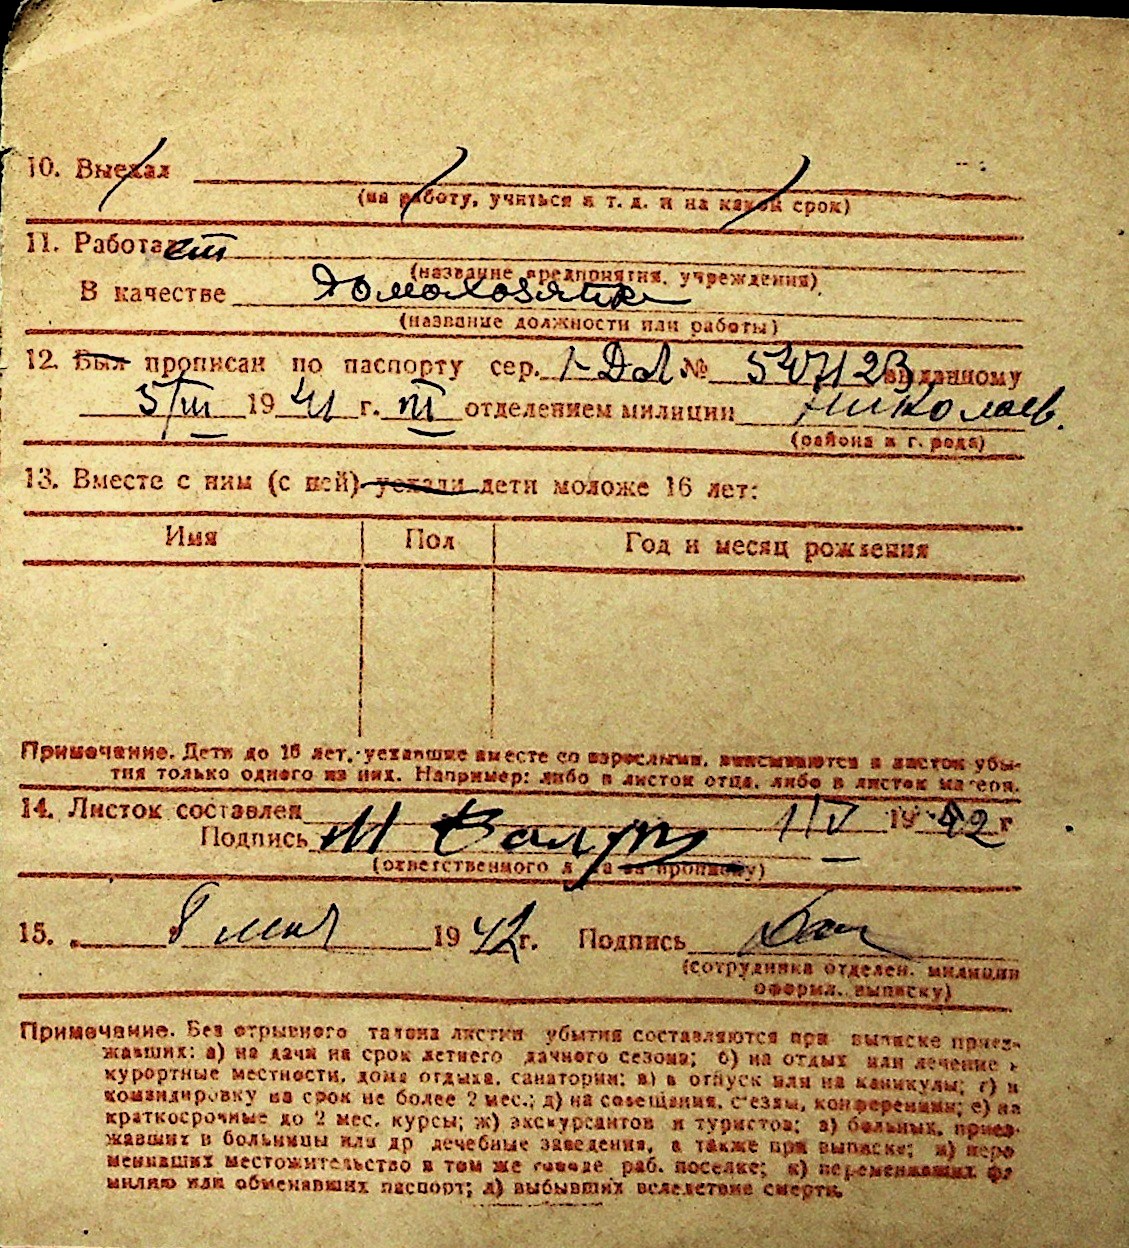 10. Выехал
(на работу, учиться и т. д. и на какой срок)
11. Работает
(название предприятия, учреждения)
В качестве домохозяйка
(название должности или работы)
12. Был прописан по паспорту сер. № выданному
5/III 1941 г. III отделением милиции Николаев.
(района и города)
13. Вместе с ним (с ней) уехали дети моложе 16 лет:
Имя Пол Год и месяц рождения
Примечание. Дети до 16 лет, уехавшие вместе со взрослыми, вписываются в листок убы-
тия только одного из них. Например: либо в листок отца, либо в листок матери.
14. Листок составлен 1/V 1942 г
Подпись
(ответственного лица за прописку)
15. 8 мая 1942 г. Подпись
(сотрудника отделен. милиции
оформл. выписку)
Примечание. Без отрывного талона листки убытия составляются при выписке приез-
жавших: а) на дачи на срок летнего дачного сезона; б) на отдых или лечение в
курортные местности, дома отдыха, санатории; в) в отпуск или на каникулы; г) в
командировку на срок не более 2 мес.; д) на совещания, съезды, конференции; е) на
краткосрочные до 2 мес. курсы; ж) экскурсантов и туристов; з) больных, приез-
жавших в больницы или др лечебные заведения, а также при выписке; и) пере
менивших местожительство в том же городе раб. поселке; к) переменивших фа
милию или обменявших паспорт; л) выбывших вследствие смерти.